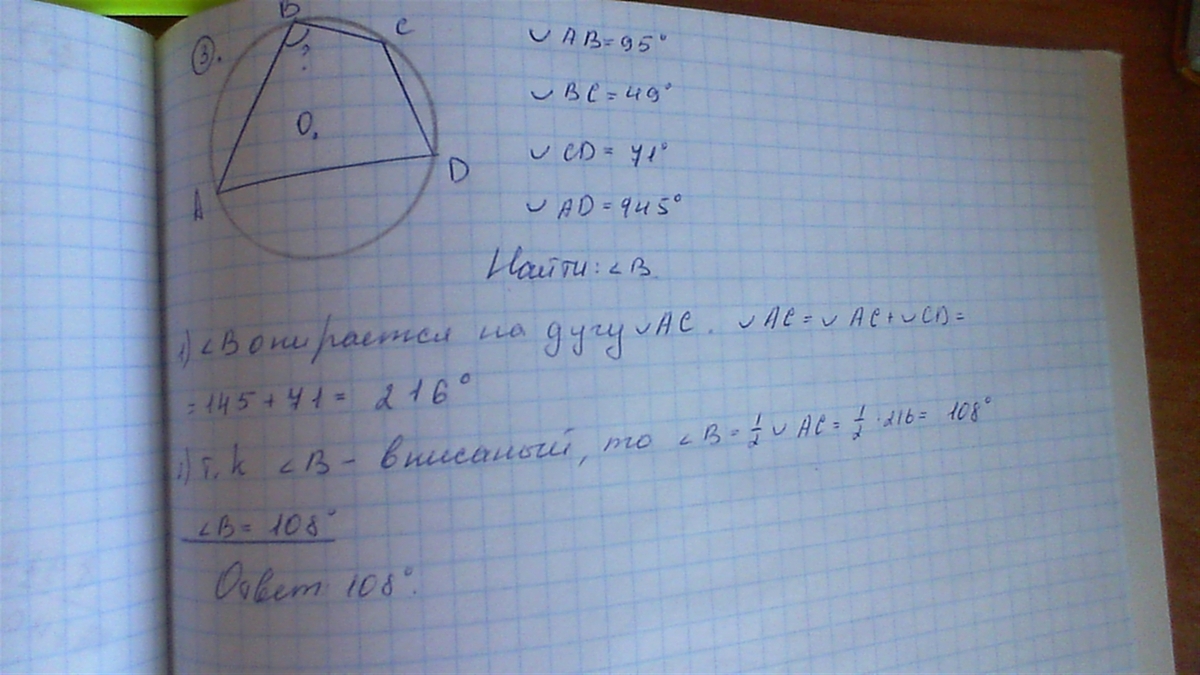 3.
B
C
?
O
A
D
◡ AB = 95°
◡ BC = 49°
◡ CD = 71°
◡ AD = 945°
Найти: ∠B.
1) ∠B опирается на дугу ◡AC. ◡ AC = ◡ AC + ◡ CD =
= 145 + 71 = 216°
2) Т.к ∠B - вписаный, то ∠B = 1/2 ◡ AC = 1/2 · 216 = 108°
∠B = 108°
Ответ: 108°.